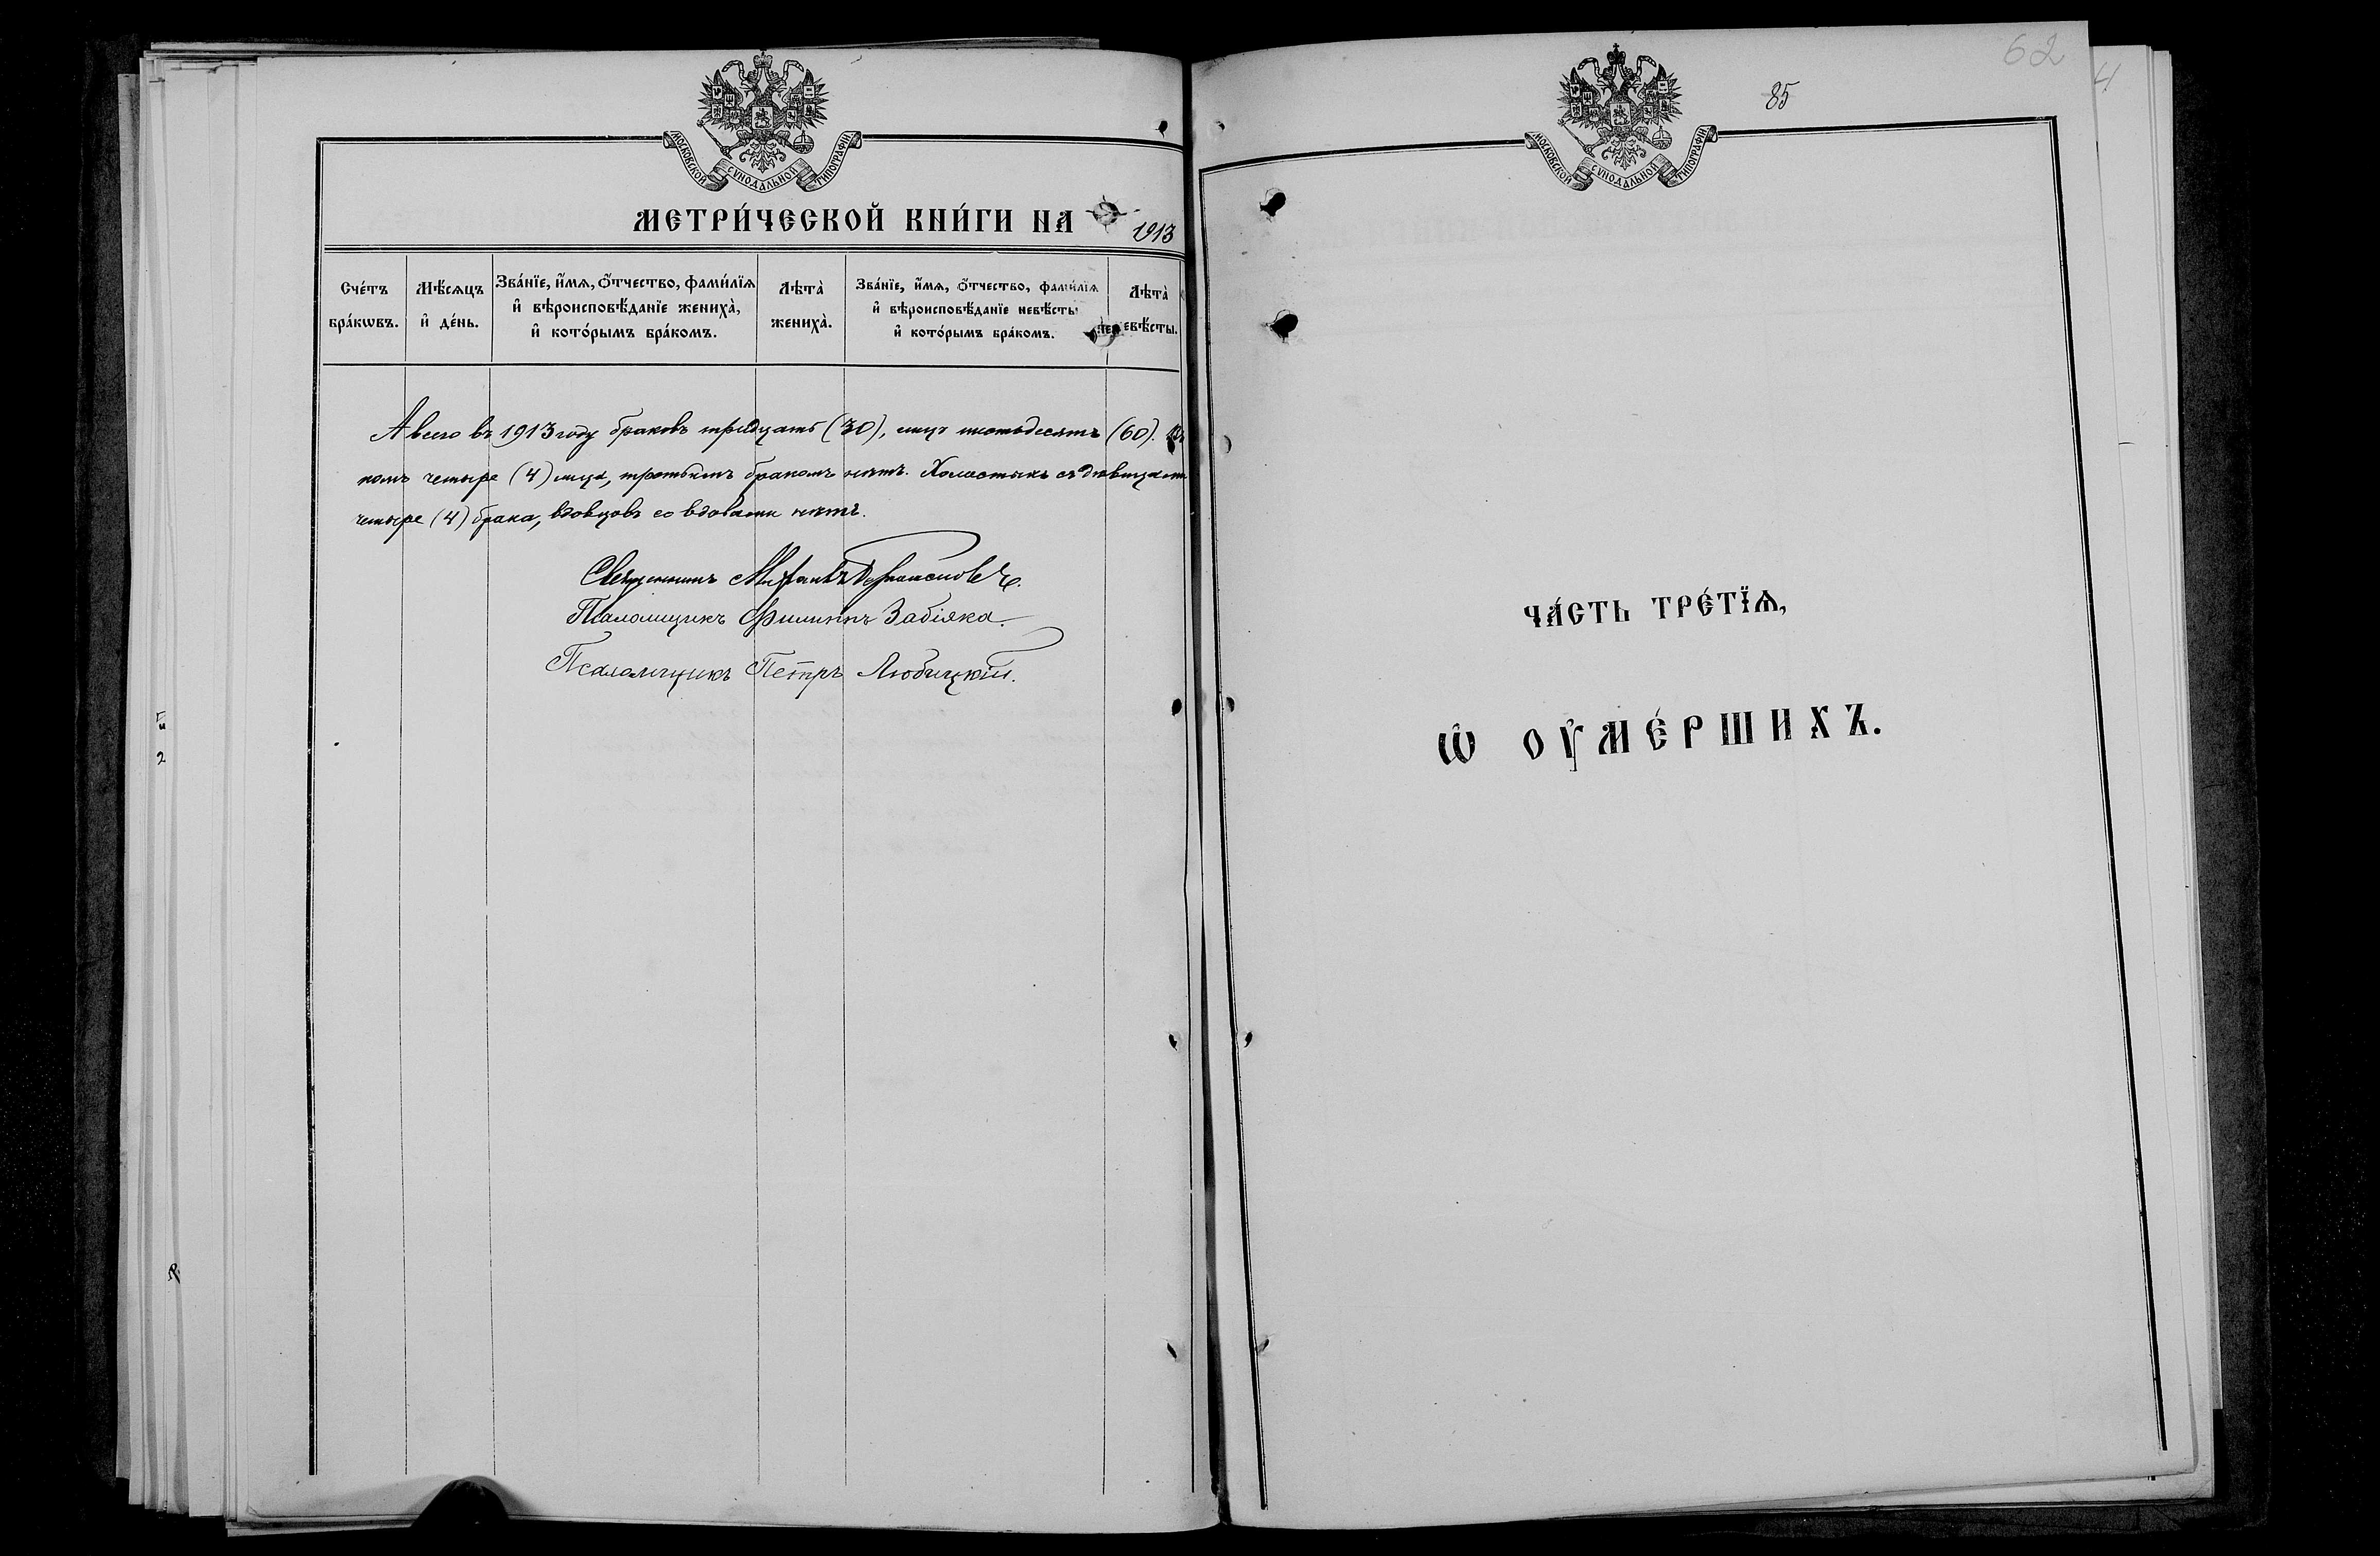 МОСКОВСКОЙ СѴНОДАЛЬНОЙ ТИПОГРАФІИ
МЕТРИ́ЧЕСКОЙ КНИ́ГИ НА 1913
Сче́тъ бра́кѡвъ.
Мѣ́сѧцъ и҆ де́нь.
Зва́нїе, и҆́мѧ, ѻ҆́тчество, фами́лїѧ
и҆ вѣроисповѣ́данїе жениха̀,
и҆ кото́рымъ бра́комъ.
Лѣта̀ жениха̀.
Зва́нїе, и҆́мѧ, ѻ҆́тчество, фами́лїѧ
и҆ вѣроисповѣ́данїе невѣ́сты
и҆ кото́рымъ бра́комъ.
Лѣта̀ невѣ́сты.
А всего въ 1913 году браковъ тридцать (30), лицъ шестьдесятъ (60).
комъ четыре (4) лица, третьимъ бракомъ нѣтъ. Холостыхъ съ дѣвицами
четыре (4) брака, вдовцовъ со вдовами нѣтъ.
Священникъ
Псаломщикъ Филиппъ Забіяка.
Псаломщикъ Петръ Любицкій.
62
4
85
МОСКОВСКОЙ СѴНОДАЛЬНОЙ ТИПОГРАФІИ
ЧА́СТЬ ТРЕ́ТЇѦ,
Ѡ҆ ОУ҆МЕ́РШИХЪ.